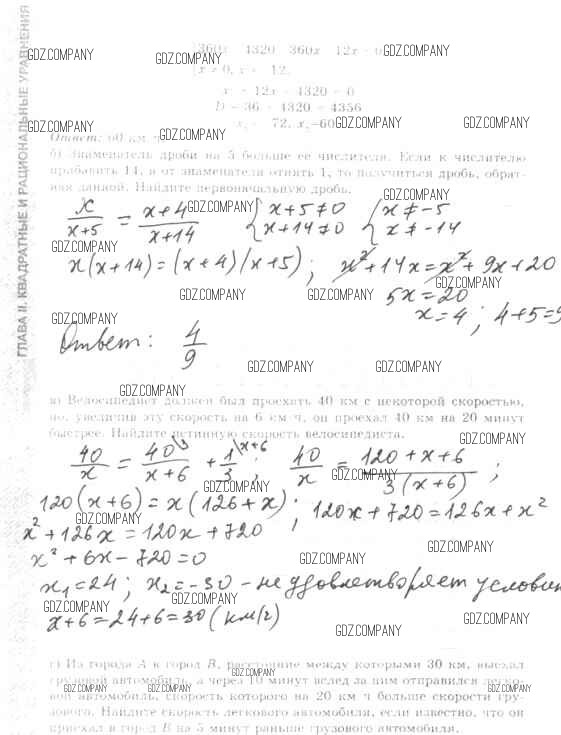 ГЛАВА II. КВАДРАТНЫЕ И РАЦИОНАЛЬНЫЕ УРАВНЕНИЯ
360x 4320 360x 12x 0
GDZ.COMPANY
GDZ.COMPANY
GDZ.COMPANY
x ≠ 0, x 12,
x 12x 4320 = 0
D = 36 + 4320 = 4356
GDZ.COMPANY
GDZ.COMPANY
GDZ.COMPANY
x 72, x =60
Ответ: 60 км
GDZ.COMPANY
б) Знаменатель дроби на 5 больше ее числителя. Если к числителю
прибавить 14, а от знаменателя отнять 1, то получиться дробь, обрат-
ная данной. Найдите первоначальную дробь.
GDZ.COMPANY
x/(x+5) = (x+4)/(x+14) GDZ.COMPANY { x+5≠0 { x≠-5
x+14≠0 x≠-14
GDZ.COMPANY
x(x+14)=(x+4)(x+5); x²+14x=x²+9x+20
GDZ.COMPANY GDZ.COMPANY GDZ.COMPANY
5x=20
x=4; 4+5=9
GDZ.COMPANY
Ответ: 4/9
GDZ.COMPANY GDZ.COMPANY
GDZ.COMPANY
в) Велосипедист должен был проехать 40 км с некоторой скоростью,
но, увеличив эту скорость на 6 км/ч, он проехал 40 км на 20 минут
быстрее. Найдите истинную скорость велосипедиста.
GDZ.COMPANY
40/x = 40\3/(x+6) + 1\x+6/3; 40/x = (120+x+6)/(3(x+6));
GDZ.COMPANY
GDZ.COMPANY
120(x+6)=x(126+x); 120x+720=126x+x²
GDZ.COMPANY
x²+126x=120x+720
GDZ.COMPANY
x²+6x-720=0
GDZ.COMPANY
x₁=24; x₂=-30 - не удовлетворяет услови
GDZ.COMPANY
GDZ.COMPANY
x+6=24+6=30(км/г)
GDZ.COMPANY
GDZ.COMPANY
г) Из города A в город B, расстояние между которыми 30 км, выехал
GDZ.COMPANY
грузовой автомобиль, а через 10 минут вслед за ним отправился легко-
GDZ.COMPANY GDZ.COMPANY GDZ.COMPANY
вой автомобиль, скорость которого на 20 км ч больше скорости гру-
зового. Найдите скорость легкового автомобиля, если известно, что он
приехал в город B на 5 минут раньше грузового автомобиля.